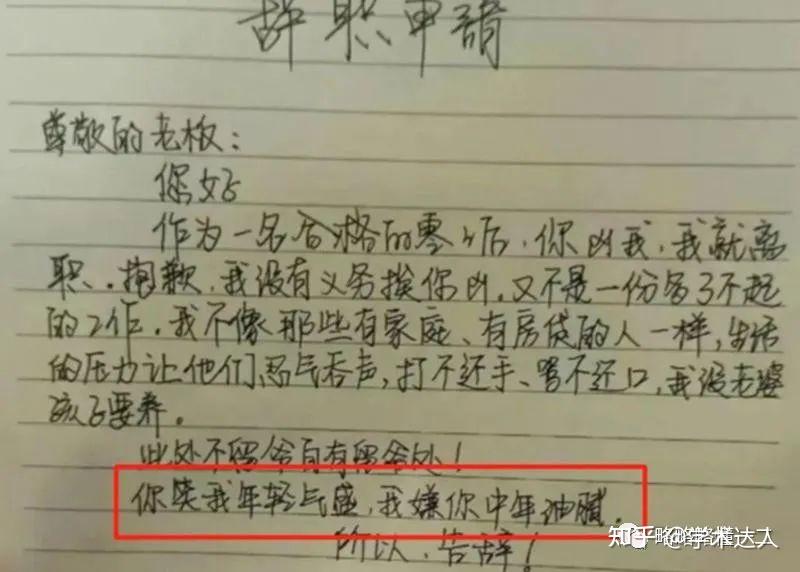 辞职申请
尊敬的老板:
您好
作为一名合格的零0后,你凶我,我就离
职.抱歉,我没有义务挨你凶.又不是一份多了不起
的工作.我不像那些有家庭、有房贷的人一样,生活
的压力让他们忍气吞声,打不还手、骂不还口,我没老婆
孩子要养。
此处不留爷自有留爷处!
你笑我年轻气盛,我嫌你中年油腻.
所以,告辞!
知乎 @学术达人